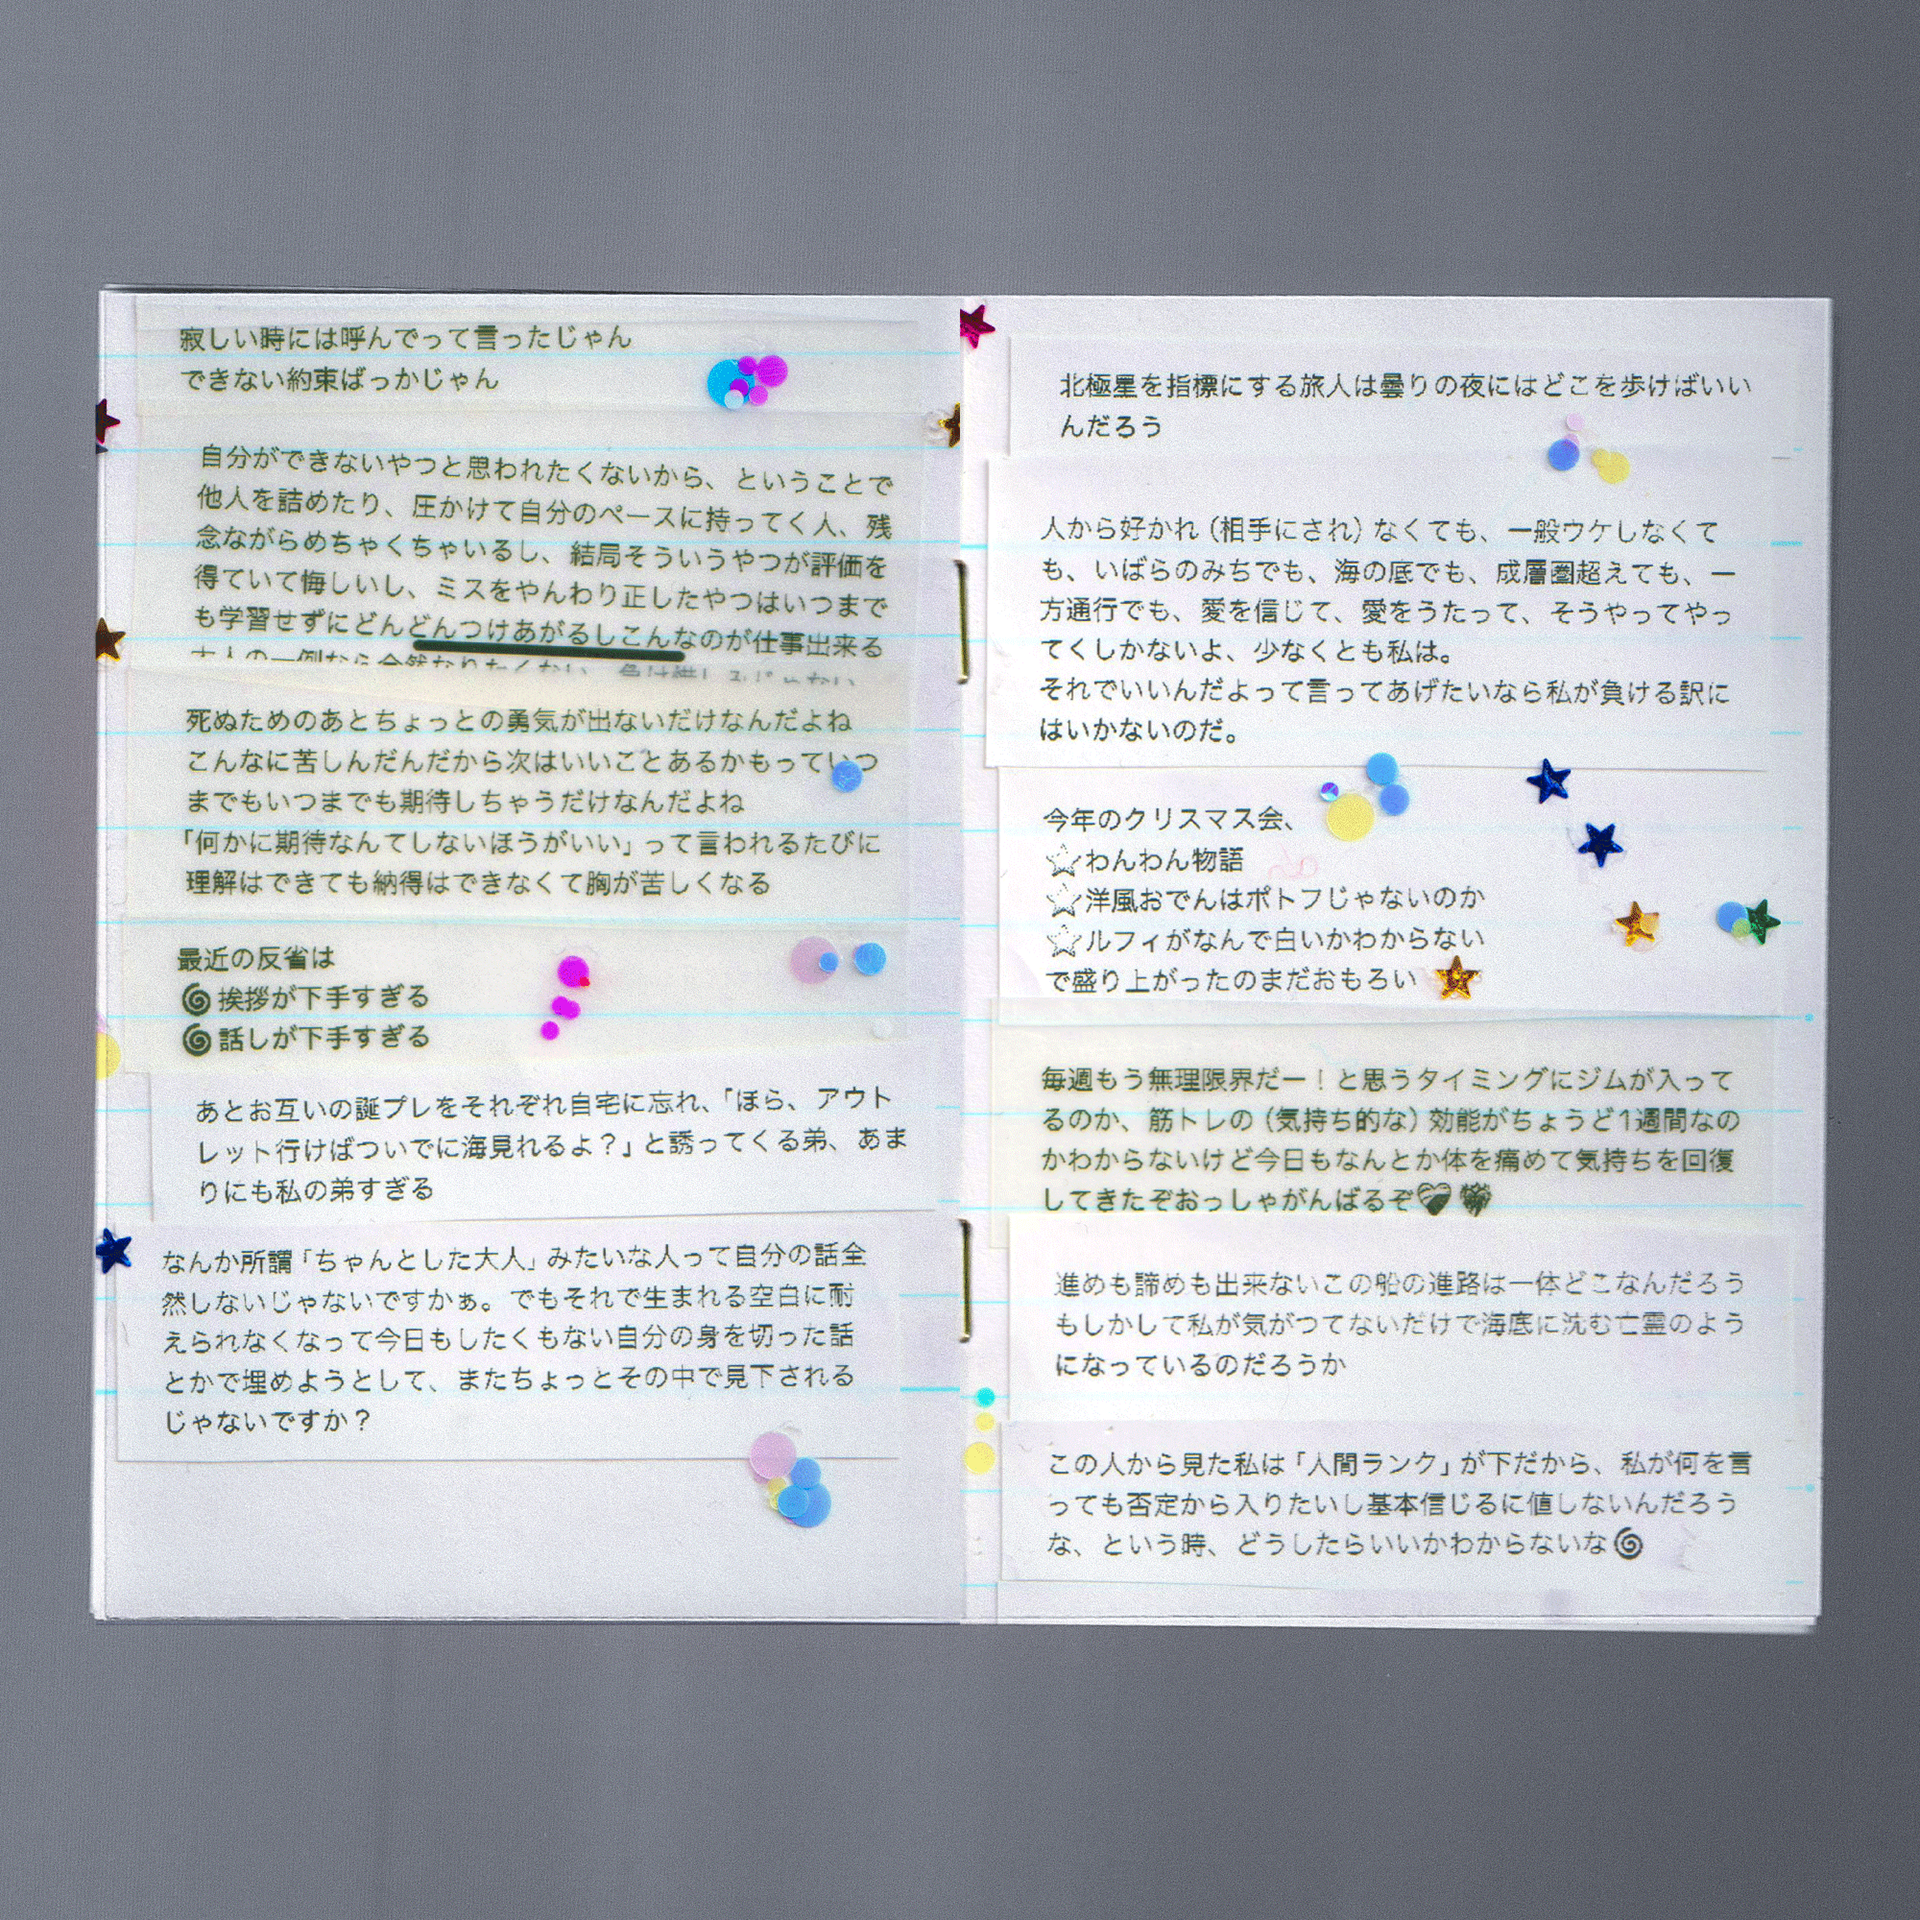 寂しい時には呼んでって言ったじゃん
できない約束ばっかじゃん
自分ができないやつと思われたくないから、ということで
他人を詰めたり、圧かけて自分のペースに持ってく人、残
念ながらめちゃくちゃいるし、結局そういうやつが評価を
得ていて悔しいし、ミスをやんわり正したやつはいつまで
も学習せずにどんどんつけあがるしこんなのが仕事出来る
大人の一例なら全然なりたくない、
死ぬためのあとちょっとの勇気が出ないだけなんだよね
こんなに苦しんだんだから次はいいことあるかもっていつ
までもいつまでも期待しちゃうだけなんだよね
「何かに期待なんてしないほうがいい」って言われるたびに
理解はできても納得はできなくて胸が苦しくなる
最近の反省は
🌀挨拶が下手すぎる
🌀話しが下手すぎる
あとお互いの誕プレをそれぞれ自宅に忘れ、「ほら、アウト
レット行けばついでに海見れるよ？」と誘ってくる弟、あま
りにも私の弟すぎる
なんか所謂「ちゃんとした大人」みたいな人って自分の話全
然しないじゃないですかぁ。でもそれで生まれる空白に耐
えられなくなって今日もしたくもない自分の身を切った話
とかで埋めようとして、またちょっとその中で見下される
じゃないですか？
北極星を指標にする旅人は曇りの夜にはどこを歩けばいい
んだろう
人から好かれ（相手にされ）なくても、一般ウケしなくて
も、いばらのみちでも、海の底でも、成層圏超えても、一
方通行でも、愛を信じて、愛をうたって、そうやってやっ
てくしかないよ、少なくとも私は。
それでいいんだよって言ってあげたいなら私が負ける訳に
はいかないのだ。
今年のクリスマス会、
⭐️わんわん物語
⭐️洋風おでんはポトフじゃないのか
⭐️ルフィがなんで白いかわからない
で盛り上がったのまだおもろい
毎週もう無理限界だー！と思うタイミングにジムが入って
るのか、筋トレの（気持ち的な）効能がちょうど1週間なの
かわからないけど今日もなんとか体を痛めて気持ちを回復
してきたぞおっしゃがんばるぞ💝💝
進めも諦めも出来ないこの船の進路は一体どこなんだろう
もしかして私が気がつてないだけで海底に沈む亡霊のよう
になっているのだろうか
この人から見た私は「人間ランク」が下だから、私が何を言
っても否定から入りたいし基本信じるに値しないんだろう
な、という時、どうしたらいいかわからないな🌀